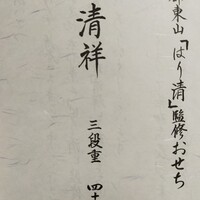 東山「はり清」監修おせち
清祥
三段重 四十